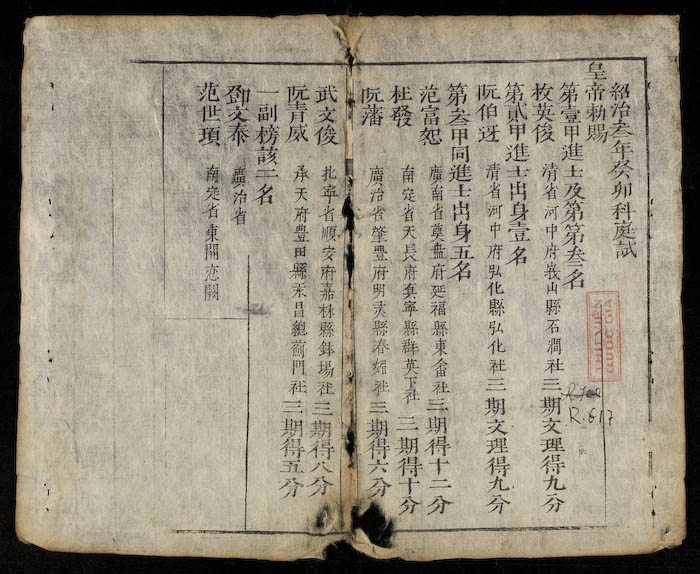 紹治叁年癸卯科庭試
皇帝勅賜
第壹甲進士及第第叁名
枚英俊 清省河中府峩山縣石澗社三期文理得九分
第貳甲進士出身壹名
阮伯迓 清省河中府弘化縣弘化社三期文理得九分
第叁甲同進士出身五名
范富恕 廣南省奠盘府延福縣東畨社三期得十二分
杜發 南定省天長府真寧縣群英下社三期得十分
阮藩 廣治省肇豐府明灵縣春媚社三期得六分
武文俊 北寧省順安府嘉林縣鉢場社三期得八分
阮青威 承天府豊田縣禾昌總薊門社三期得五分
一副榜該二名
鄧文泰 廣治省
范世頊 南定省東關恋闕
R.617